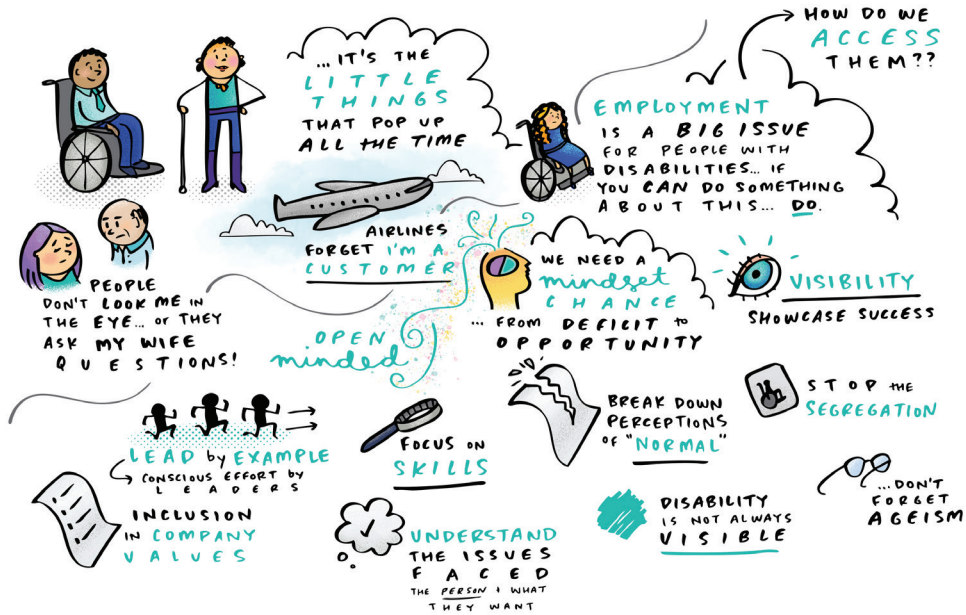 ...IT'S THE
LITTLE
THINGS
THAT POP UP
ALL THE TIME
HOW DO WE
ACCESS
THEM??
EMPLOYMENT
IS A BIG ISSUE
FOR PEOPLE WITH
DISABILITIES... IF
YOU CAN DO SOMETHING
ABOUT THIS... DO.
AIRLINES
FORGET I'M A
CUSTOMER
PEOPLE
DON'T LOOK ME IN
THE EYE... or THEY
ASK MY WIFE
QUESTIONS!
OPEN
minded
WE NEED A
mindset
CHANCE
... FROM DEFICIT to
OPPORTUNITY
VISIBILITY
SHOWCASE SUCCESS
LEAD by EXAMPLE
CONSCIOUS EFFORT by
LEADERS
FOCUS ON
SKILLS
BREAK DOWN
PERCEPTIONS
OF "NORMAL"
STOP the
SEGREGATION
INCLUSION
IN COMPANY
VALUES
UNDERSTAND
THE ISSUES
FACED
THE PERSON + WHAT
THEY WANT
DISABILITY
IS NOT ALWAYS
VISIBLE
...DON'T
FORGET
AGEISM